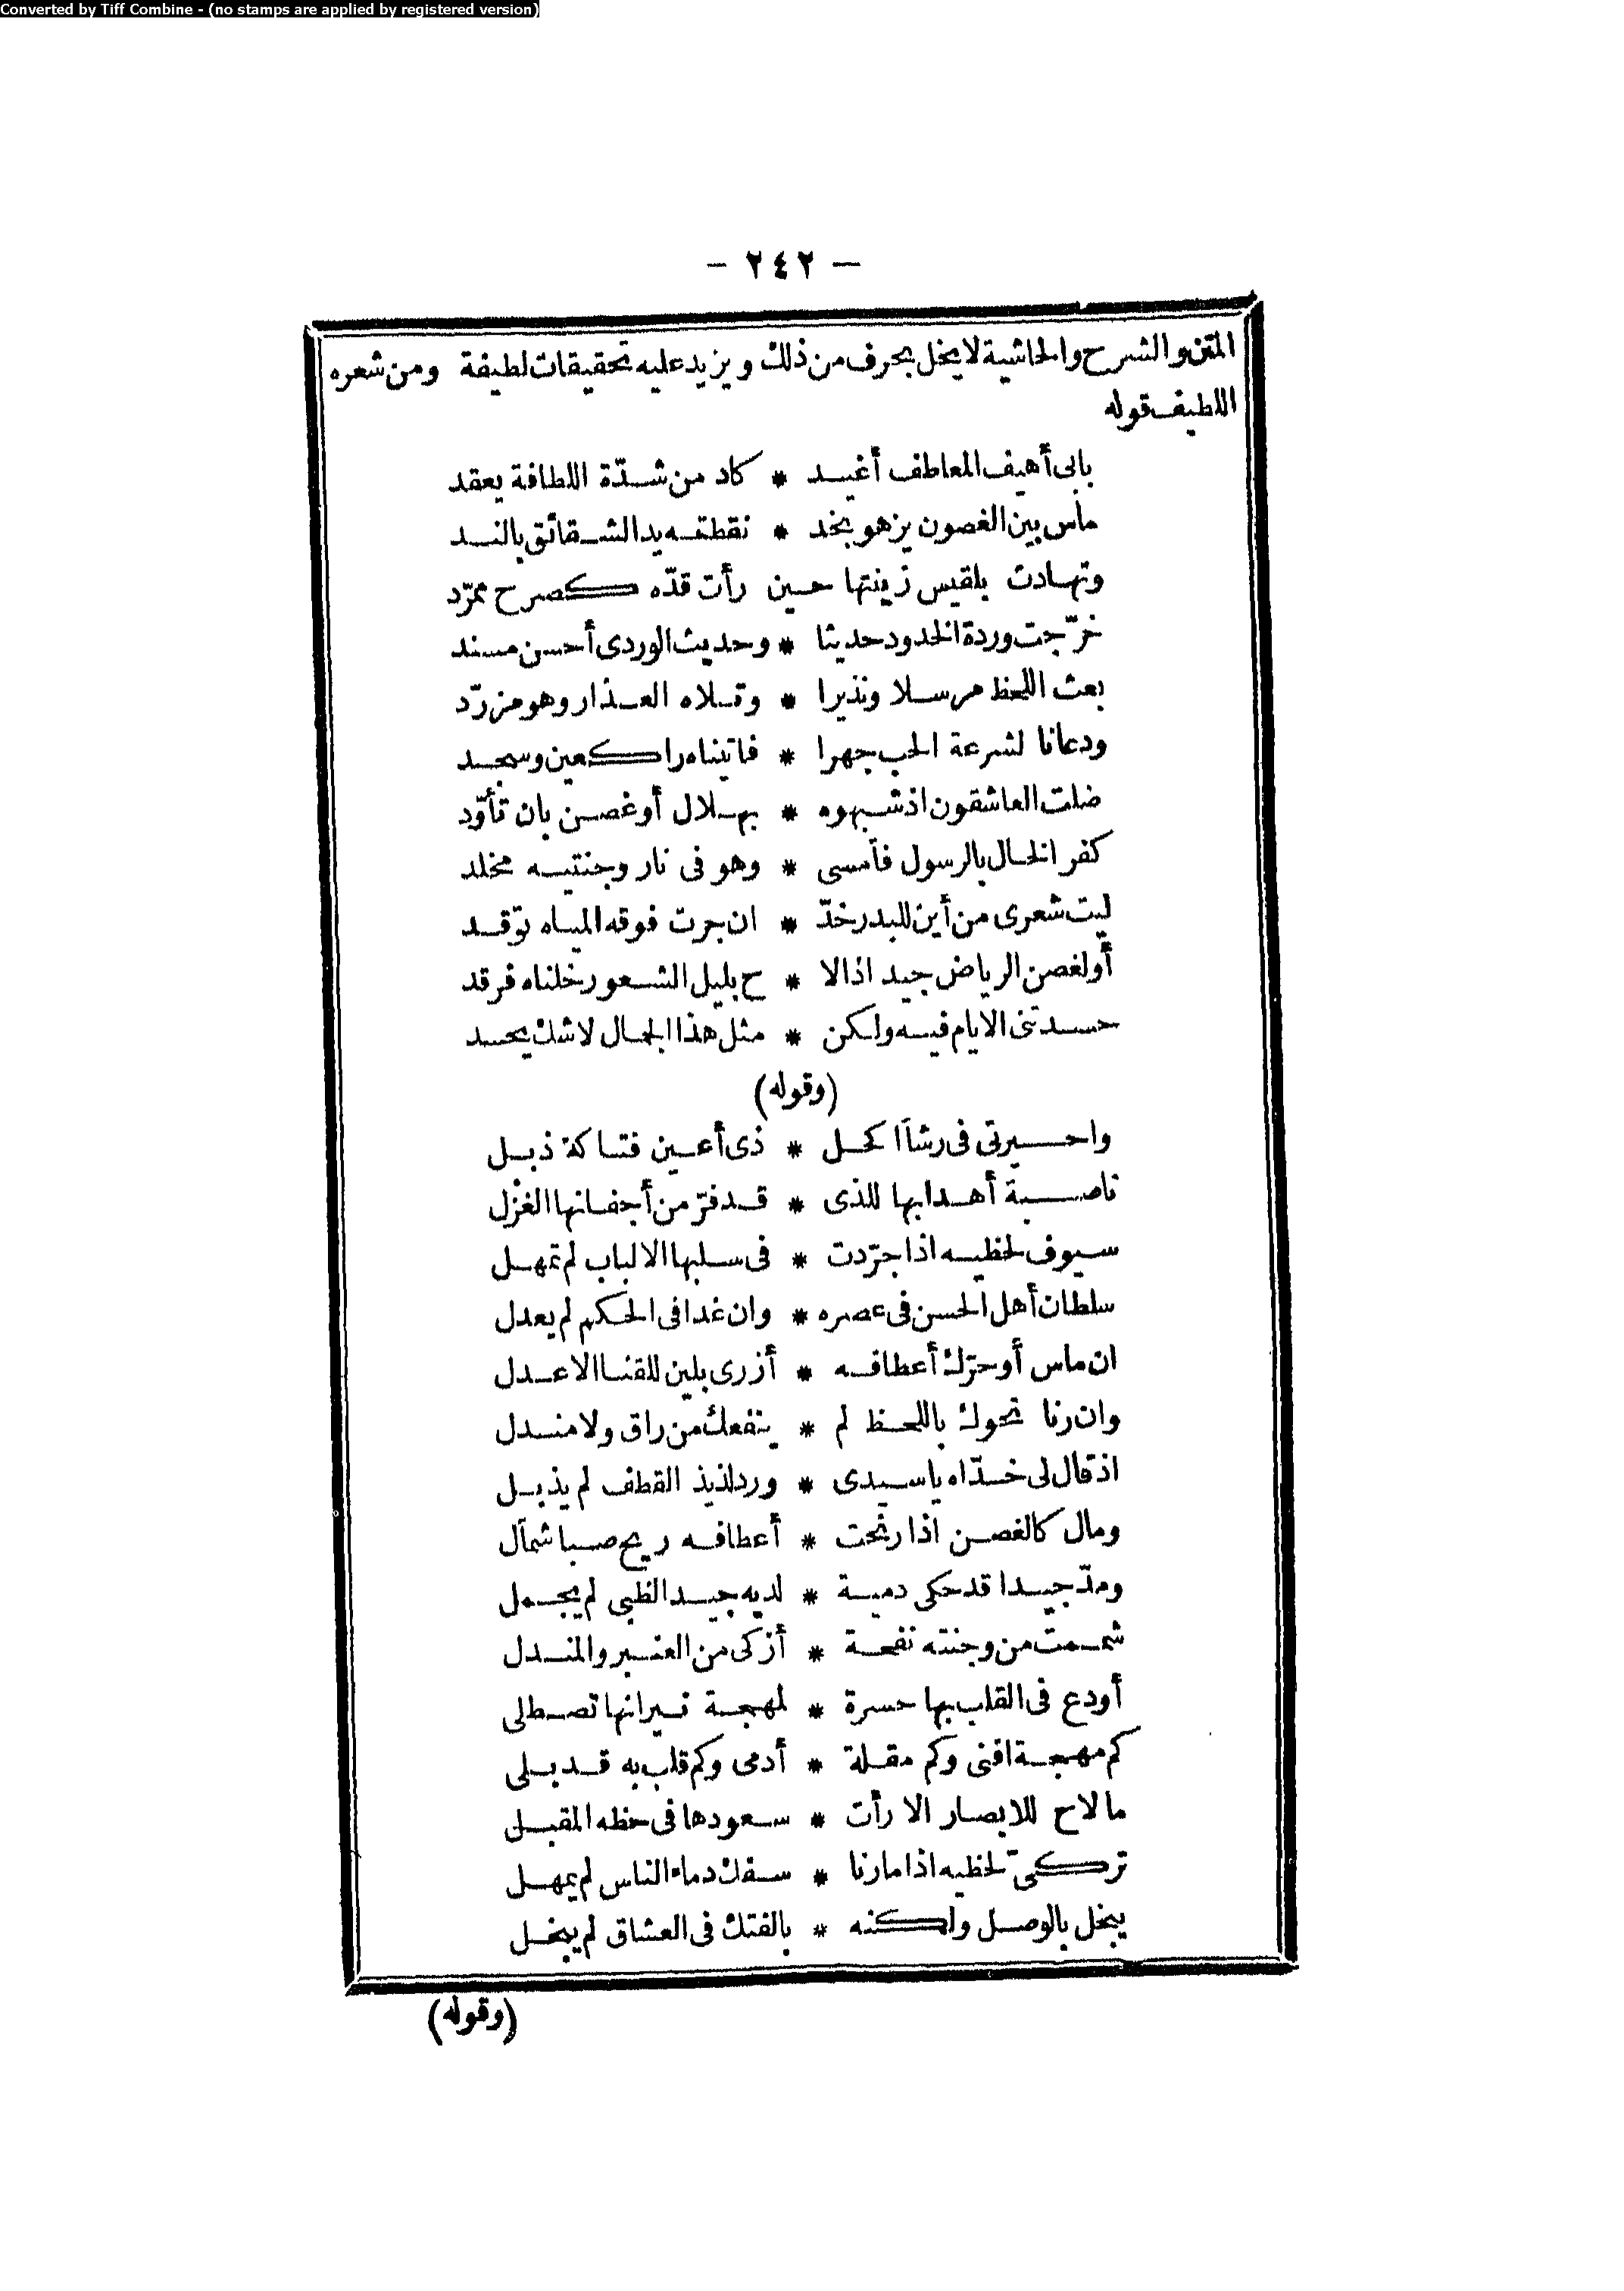 Converted by Tiff Combine - (no stamps are applied by registered version)
— ٢٤٢ —
المتن والشرح والحاشية لا يخل بحرف من ذلك ويزيد عليه تحقيقات لطيفة ومن شعره
اللطيف قوله
بابى أهيف المعاطف أغيد * كاد من شدّة اللطافة يعقد
ماس بين الغصون يزهو بخد * نقطته يد الشقائق بالند
وتهادت بلقيس زينتها حين رأت قدّه كصرح ممرّد
خرّجت وردة الخدود حديثا * وحديث الوردى أحسن مسند
بعث اللحظ مرسلا ونذيرا * وتلاه العذار وهو مزرّد
ودعانا لشرعة الحب جهرا * فاتيناه راكعين وسجد
ضلت العاشقون اذ شبهوه * بهلال أو غصن بان تأوّد
كفر الخال بالرسول فأمسى * وهو فى نار وجنتيه مخلد
ليت شعرى من أين للبدر خدّ * ان جرت فوقه المياه توّقد
أو لغصن الرياض جيد اذا لا * ح بليل الشعور خلناه فرقد
حسدتنى الايام فيه ولكن * مثل هذا الجمال لاشك يحسد
(وقوله)
واحيرتى فى رشأ اكحل * ذى أعين فتاكة ذبل
ناصبة أهدابها للذى * قد فرّ من أجفانها الغزّل
سيوف لحظيه اذا جرّدت * فى سلبها الالباب لم تمهل
سلطان أهل الحسن فى عصره * وان غدا فى الحكم لم يعدل
ان ماس أو حرّك أعطافه * أزرى بلين للقنا الاعدل
وان رنا نحوك باللحظ لم * ينفعك من راق ولا مندل
اذ قال لى خدّاه ياسيدى * ورد لذيذ القطف لم يذبل
ومال كالغصن اذا رنحت * أعطافه ريح صبا شمأل
ومدّ جيدا قد حكى دمية * لديه جيد الظبى لم يجمل
شممت من وجنته نفحة * أزكى من العنبر والمندل
أودع فى القلب بها حسرة * لمهجة نيرانها تصطلى
كم مهجة افنى وكم مقلة * أدمى وكم قلب به قد بلى
مالاح للابصار الا رأت * سعودها فى حظه المقبل
تركىّ لحظيه اذا مارنا * سفك دماء الناس لم يمهل
يبخل بالوصل ولكنه * بالفتك فى العشاق لم يبخل
(وقوله)